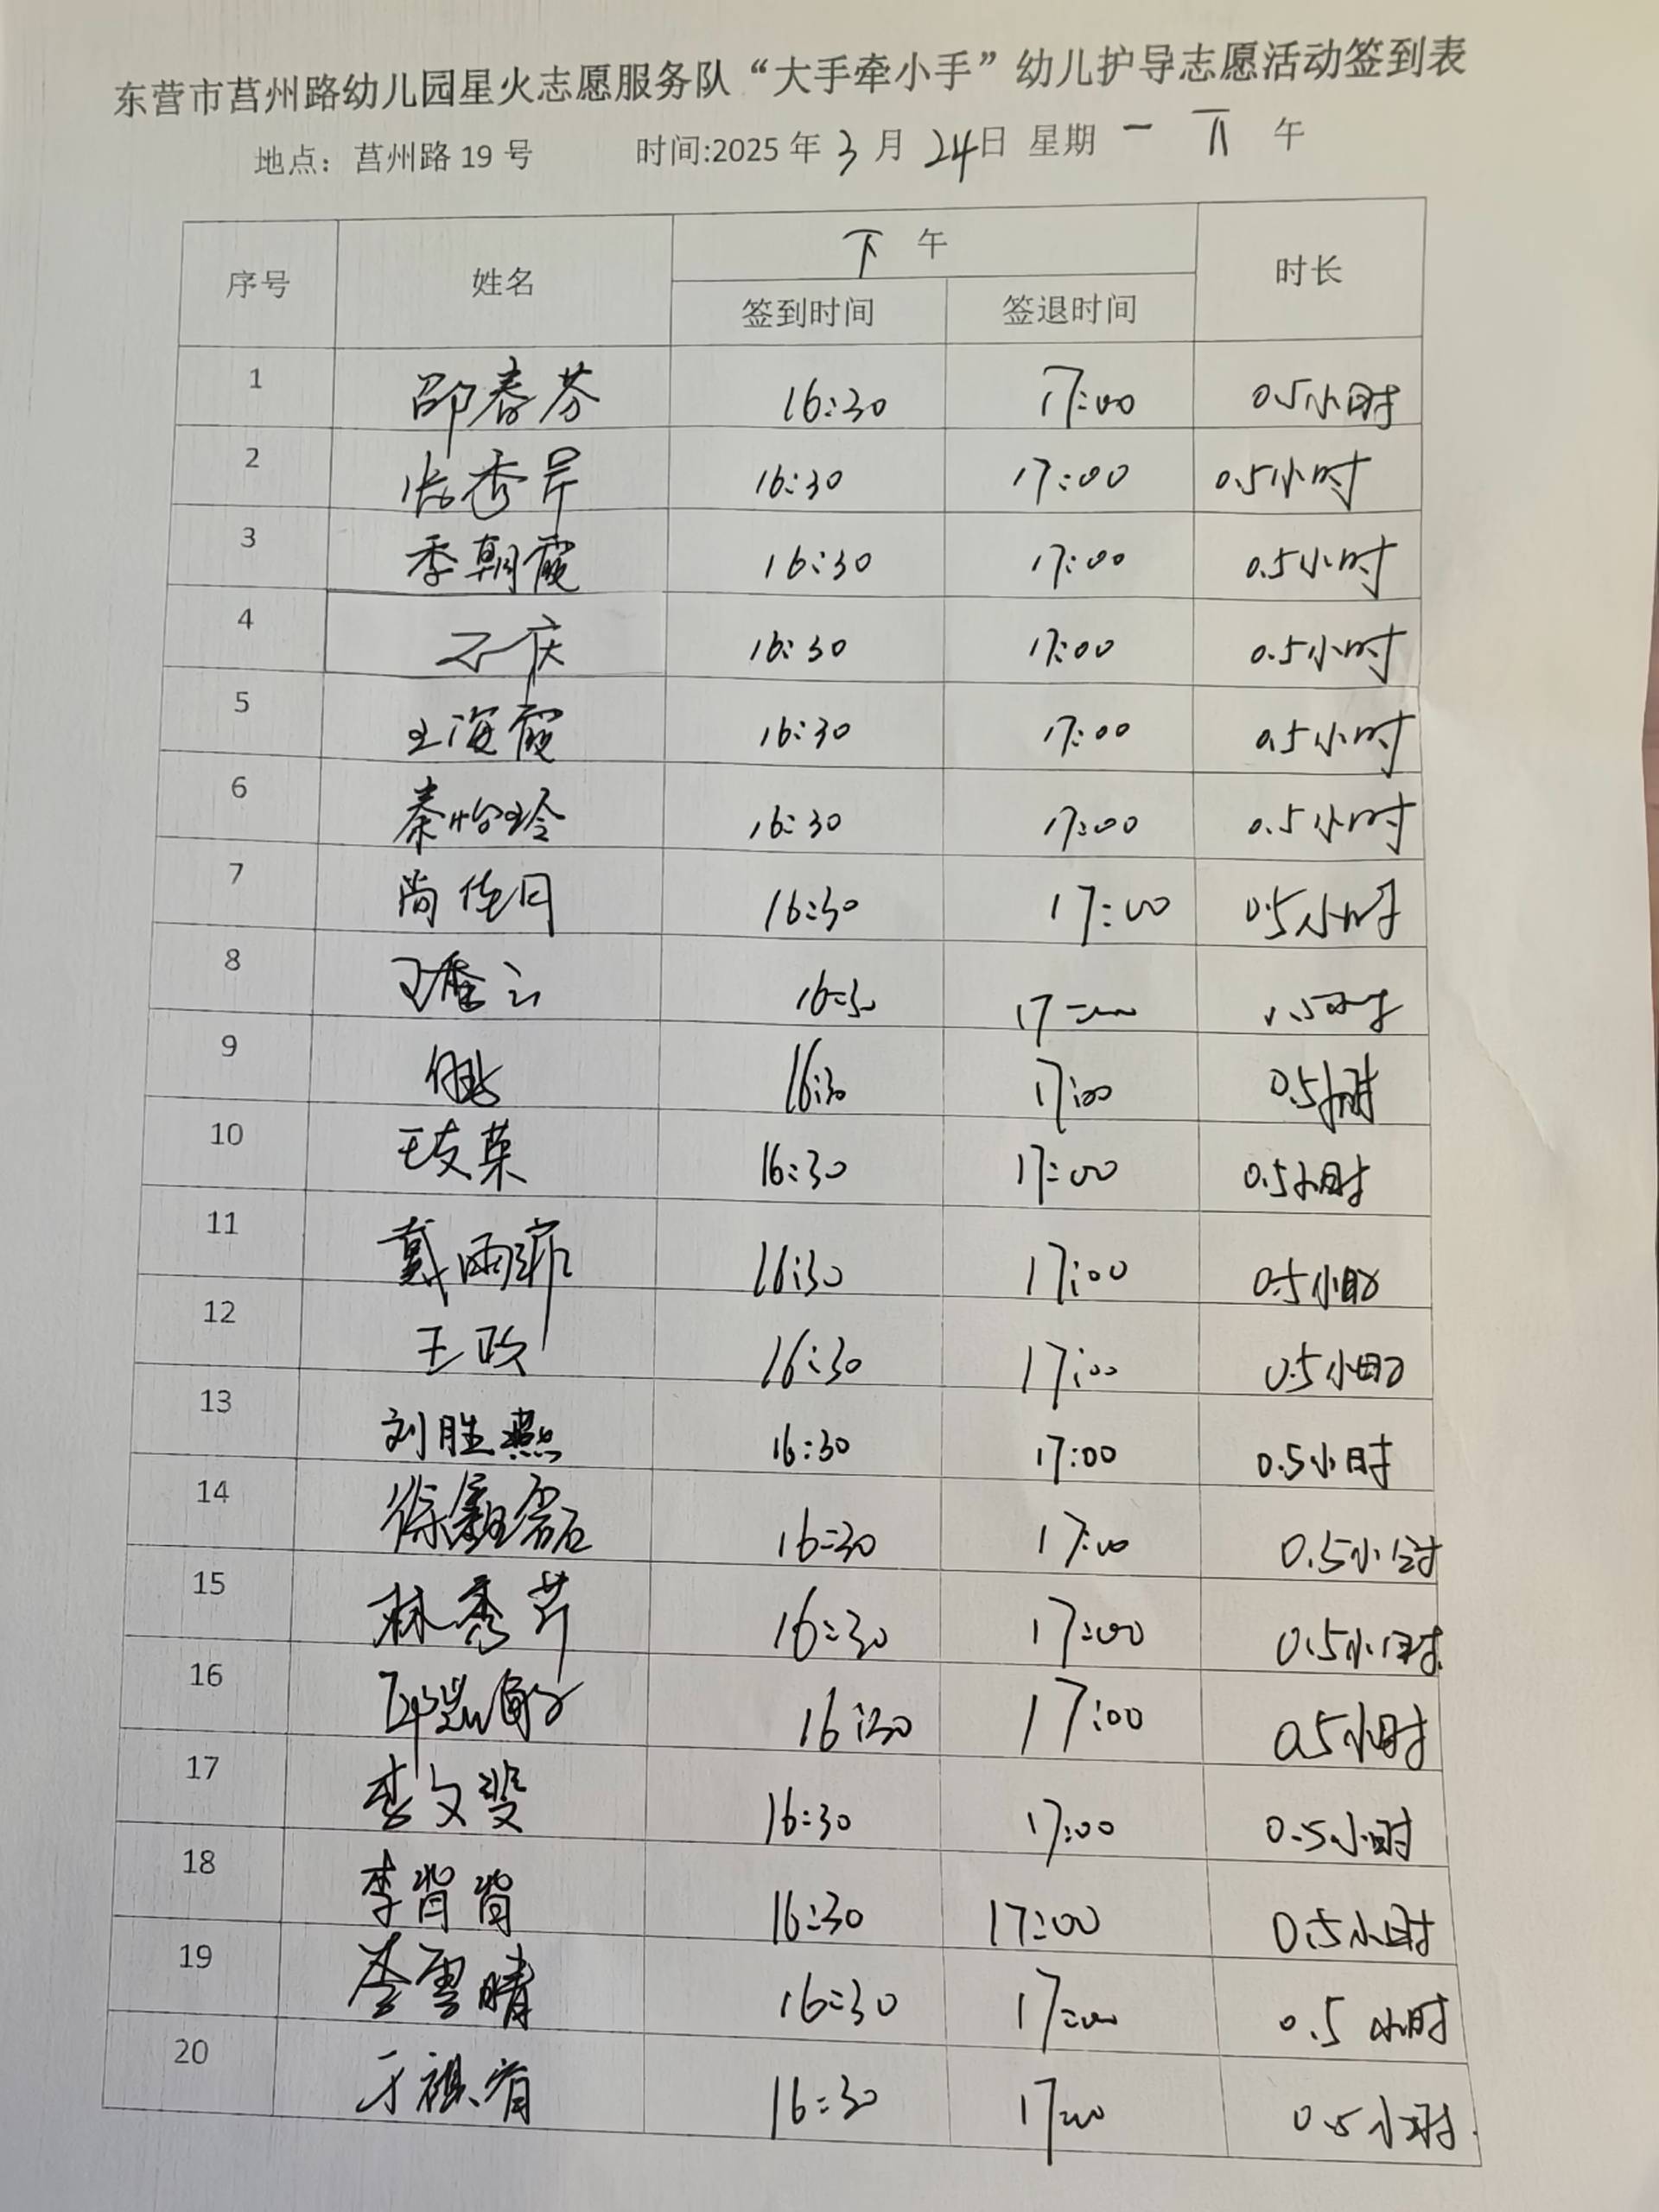 东营市莒州路幼儿园星火志愿服务队“大手牵小手”幼儿护导志愿活动签到表
地点：莒州路 19 号 时间:2025 年 3 月 24日 星期 一 下 午
序号 姓名 下 午 时长
签到时间 签退时间
1 邵春芬 16:30 17:00 0.5小时
2 张秀芹 16:30 17:00 0.5小时
3 季朝霞 16:30 17:00 0.5小时
4 16:30 17:00 0.5小时
5 王海霞 16:30 17:00 0.5小时
6 秦怡玲 16:30 17:00 0.5小时
7 尚佳月 16:30 17:00 0.5小时
8 16:30 17:00 0.5小时
9 16:30 17:00 0.5小时
10 王友荣 16:30 17:00 0.5小时
11 戴雨菲 16:30 17:00 0.5小时
12 王政 16:30 17:00 0.5小时
13 刘胜燕 16:30 17:00 0.5小时
14 16:30 17:00 0.5小时
15 林秀芹 16:30 17:00 0.5小时
16 16:30 17:00 0.5小时
17 李文斐 16:30 17:00 0.5小时
18 李肖肖 16:30 17:00 0.5小时
19 李雪晴 16:30 17:00 0.5小时
20 16:30 17:00 0.5小时